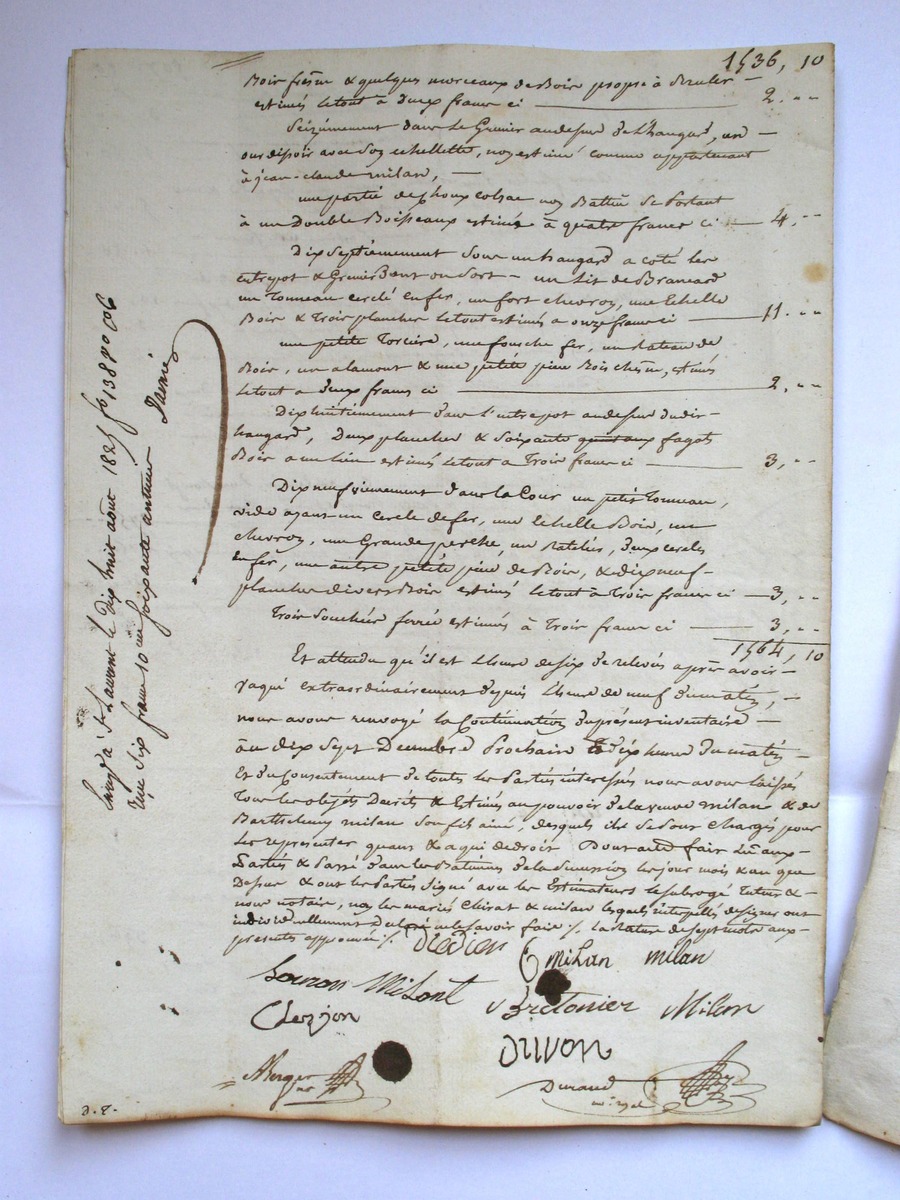 1536, 10
Bois fresne & quelques morceaux de Bois propre à Bruler —
estimés le tout à deux francs ci — 2. ..
Seizièmement dans le Grenier audessus de l'hangard, un —
ourdissoir avec son echellette, non estimé comme appartenant
à jean-claude milan, —
une partie de choux colsac non Battu Se Portant
à un Double Boisseaux estimés à quatre francs ci — 4, ..
Dix Septièmement Sous un hangard a coté les
entrepot & Grenier Dont on Sort — un Lit de Brancard
un Tonneau cerclé en fer, un fort chevron, une Echelle
Bois & Trois planches le tout estimés à onze francs ci — 11. ..
une petite Torcière, une fourche fer, un Rateau de
Bois, un alamont & une petite pièce Bois chesne, estimés
le tout a deux francs ci — 2, ..
Dixhuitièmement dans l'entrepot audessus dudit
hangard, Deux planches & soixante fagots
Bois a un lien estimés le tout a Trois francs ci — 3, ..
Dix neufvièmement dans la Cour un petit Tonneau,
vide ayant un Cercle de fer, une Echelle Bois, un
chevron, une Grande perche, un Ratelier, deux cercles
en fer, une autre petite pièce de Bois, & dix neuf —
planches divers Bois estimés le tout à Trois francs ci — 3, ..
Trois Souches foyard estimés à Trois francs ci — 3, ..
1564, 10
Et attendu qu'il est L'heure de six de relevée après avoir —
vaqué extraordinairement depuis L'heure de neuf du matin, —
nous avons renvoyé la Continuation du présent inventaire —
à au dix Sept Decembre Prochain à dix heures du matin —
Et du Consentement de toutes les Parties interessés nous avons laissés
Tous les objets Decrits & Estimés au pouvoir de la veuve milan & de
Barthelemy milan son fils ainé, desquels ils se sont chargés pour
les representer quand & a qui de droit Dont acte fait Lu aux —
Parties & Passé dans les Batiments de la Succession les jour mois & an que
Dessus & ont les Parties signé avec les Estimateurs le subrogé Tuteur & —
nous notaire, non les mariés Chirat & milan lesquels interpellés de signer ont
individuellement Declaré ne le savoir faire /. La Rature de sept mots aux —
presentes approuvée /.
milan milan
Milont Bretonier Milan
Clerjon
Duvon
Berger
Durand
Enreg.é à St Laurent le Dix huit aout 1825 f.o 138 v.o C.e 6
Reçu Six francs 10 c.mes soixante centimes